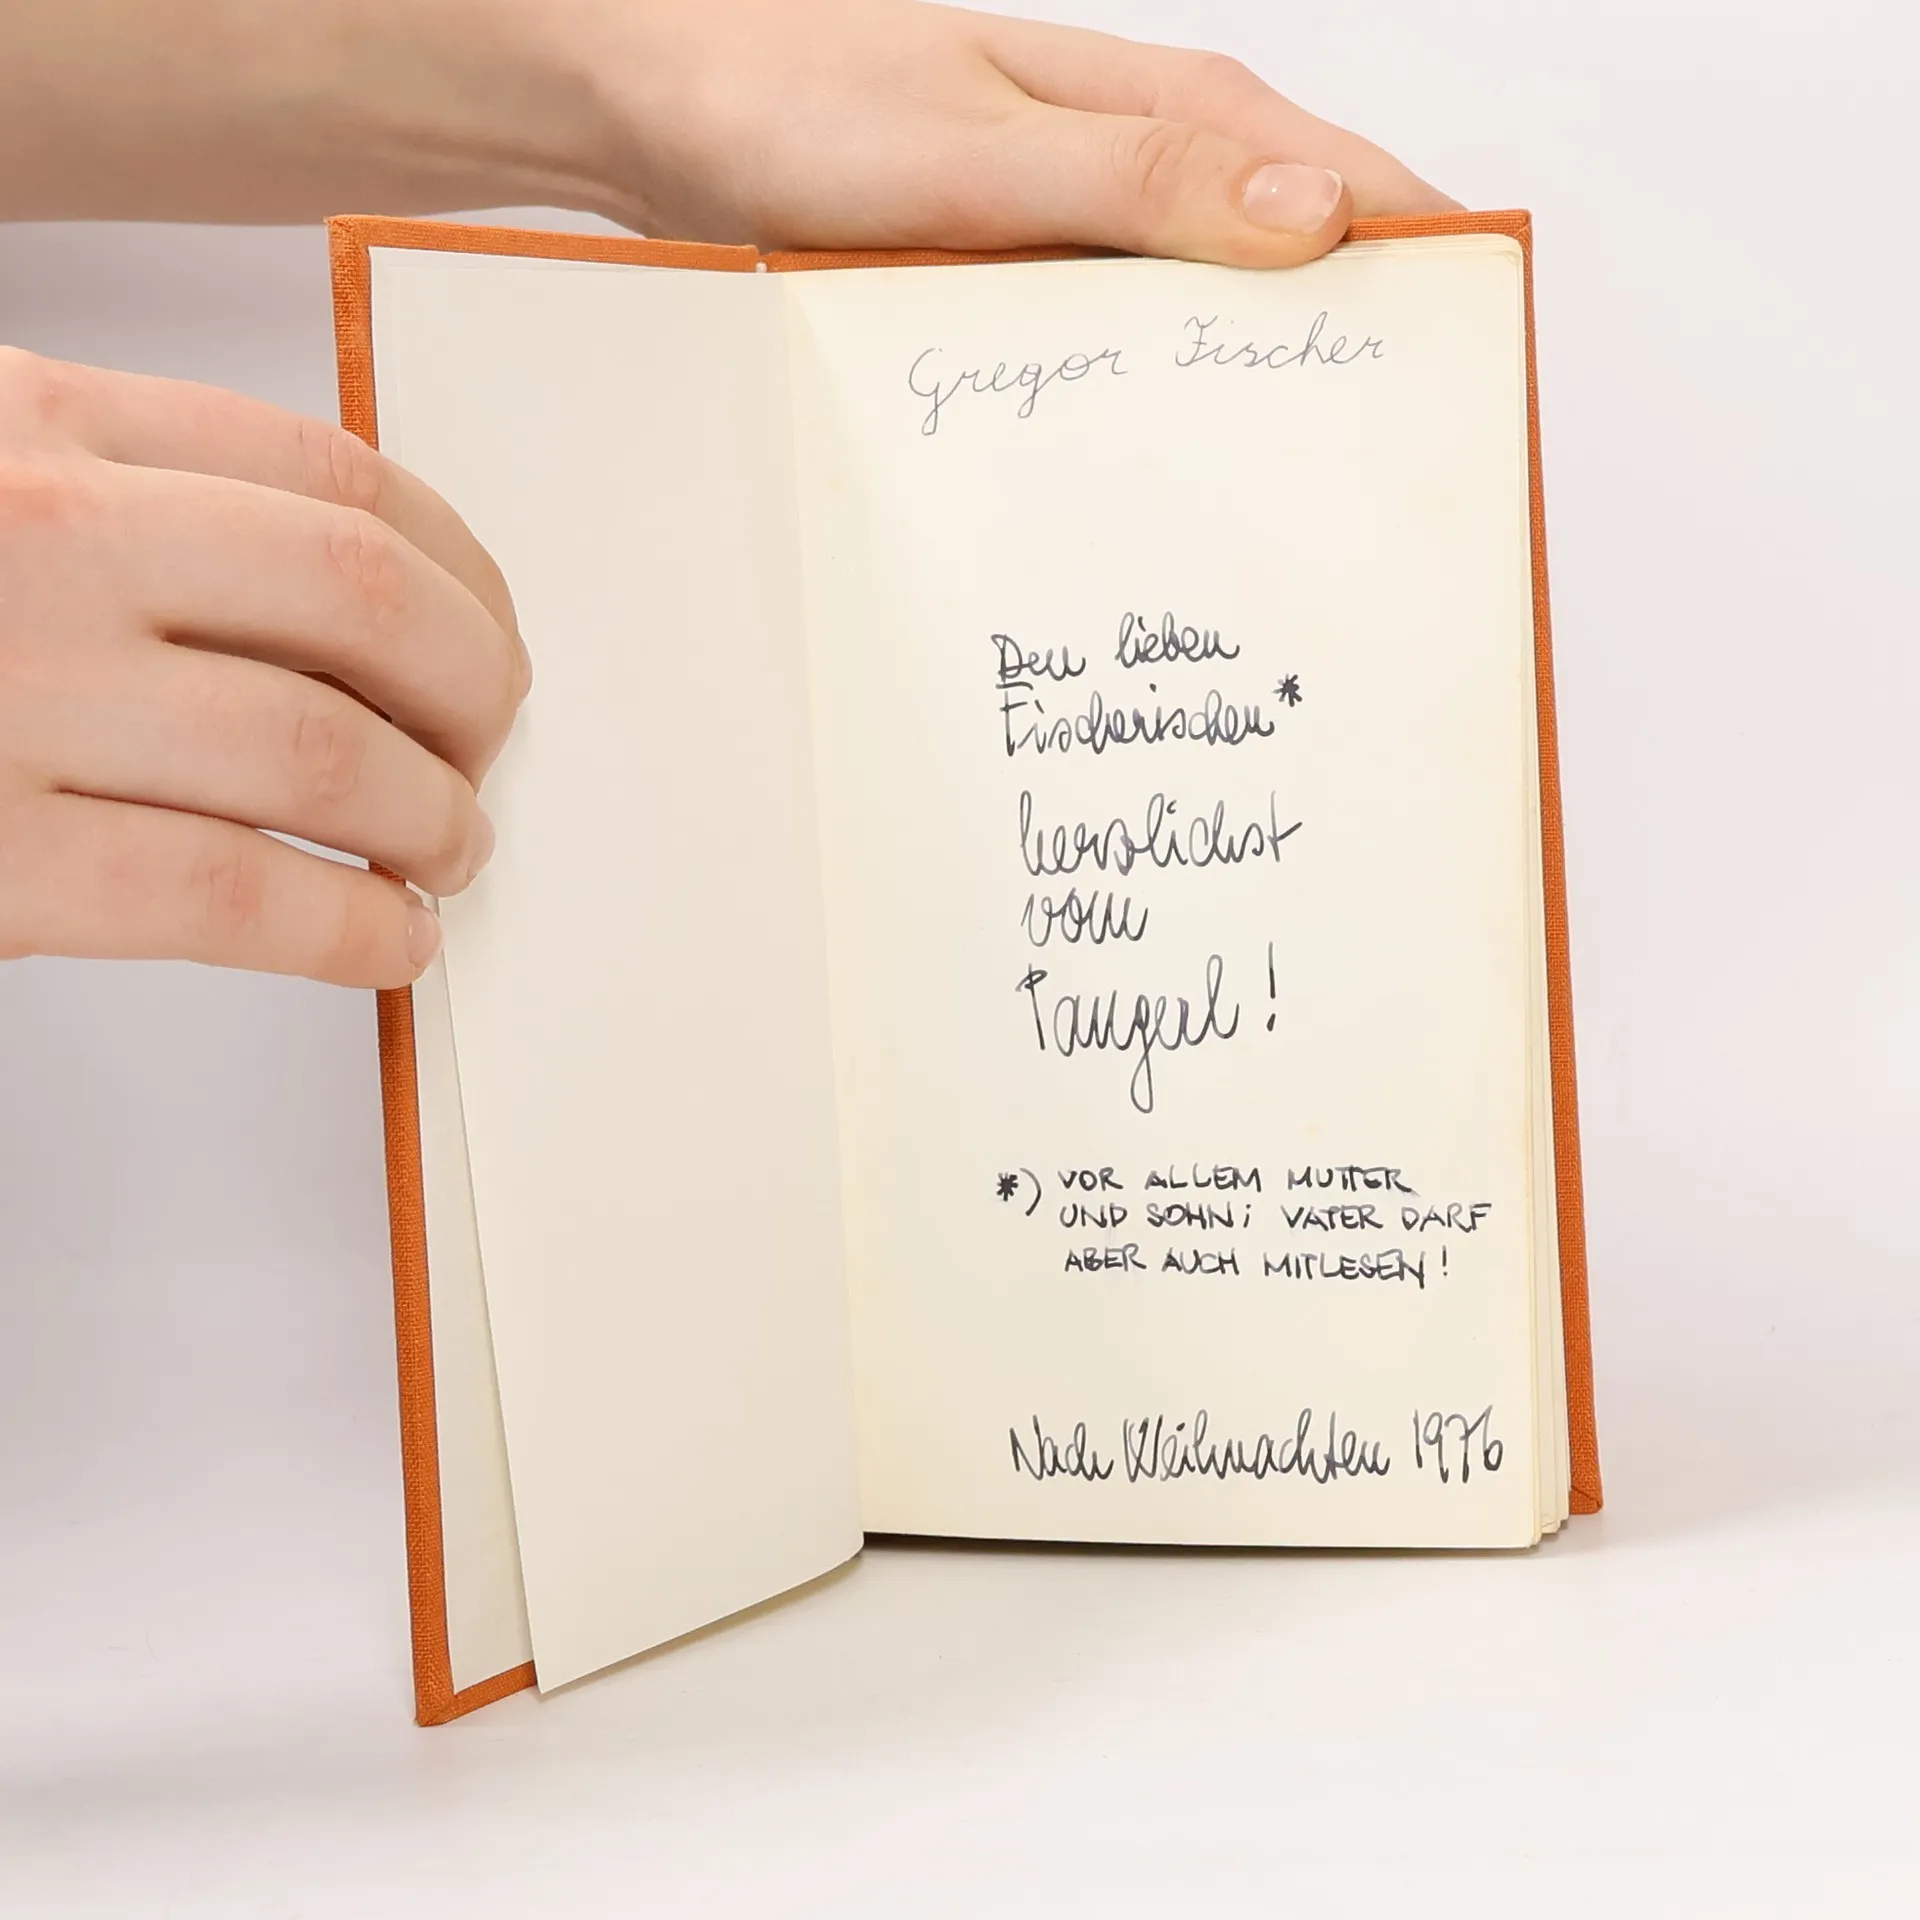 Gregor Fischer
Den lieben
Fischerischen*
herzlichst
vom
Tangerl!
*) VOR ALLEM MUTTER
UND SOHN; VATER DARF
ABER AUCH MITLESEN!
Nach Weihnachten 1976